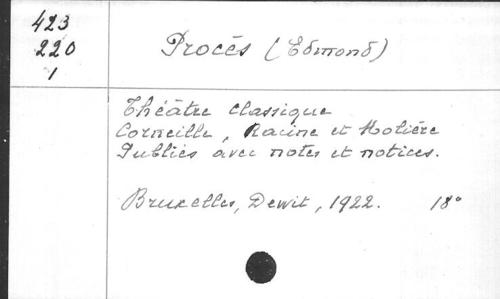 423
220
1
Procès (Edmond)
Théâtre classique
Corneille, Racine et Molière
Publiés avec notes et notices.
Bruxelles, Dewit, 1922. 18°